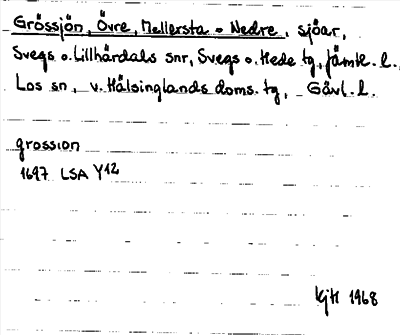 Grössjön, Övre, Mellersta o Nedre, sjöar,
Svegs o. Lillhärdals snr, Svegs o. Hede tg, Jämtl. l.,
Los sn, v. Hälsinglands doms. tg, Gävl. l.
grossion
1697 LSA Y12
1968